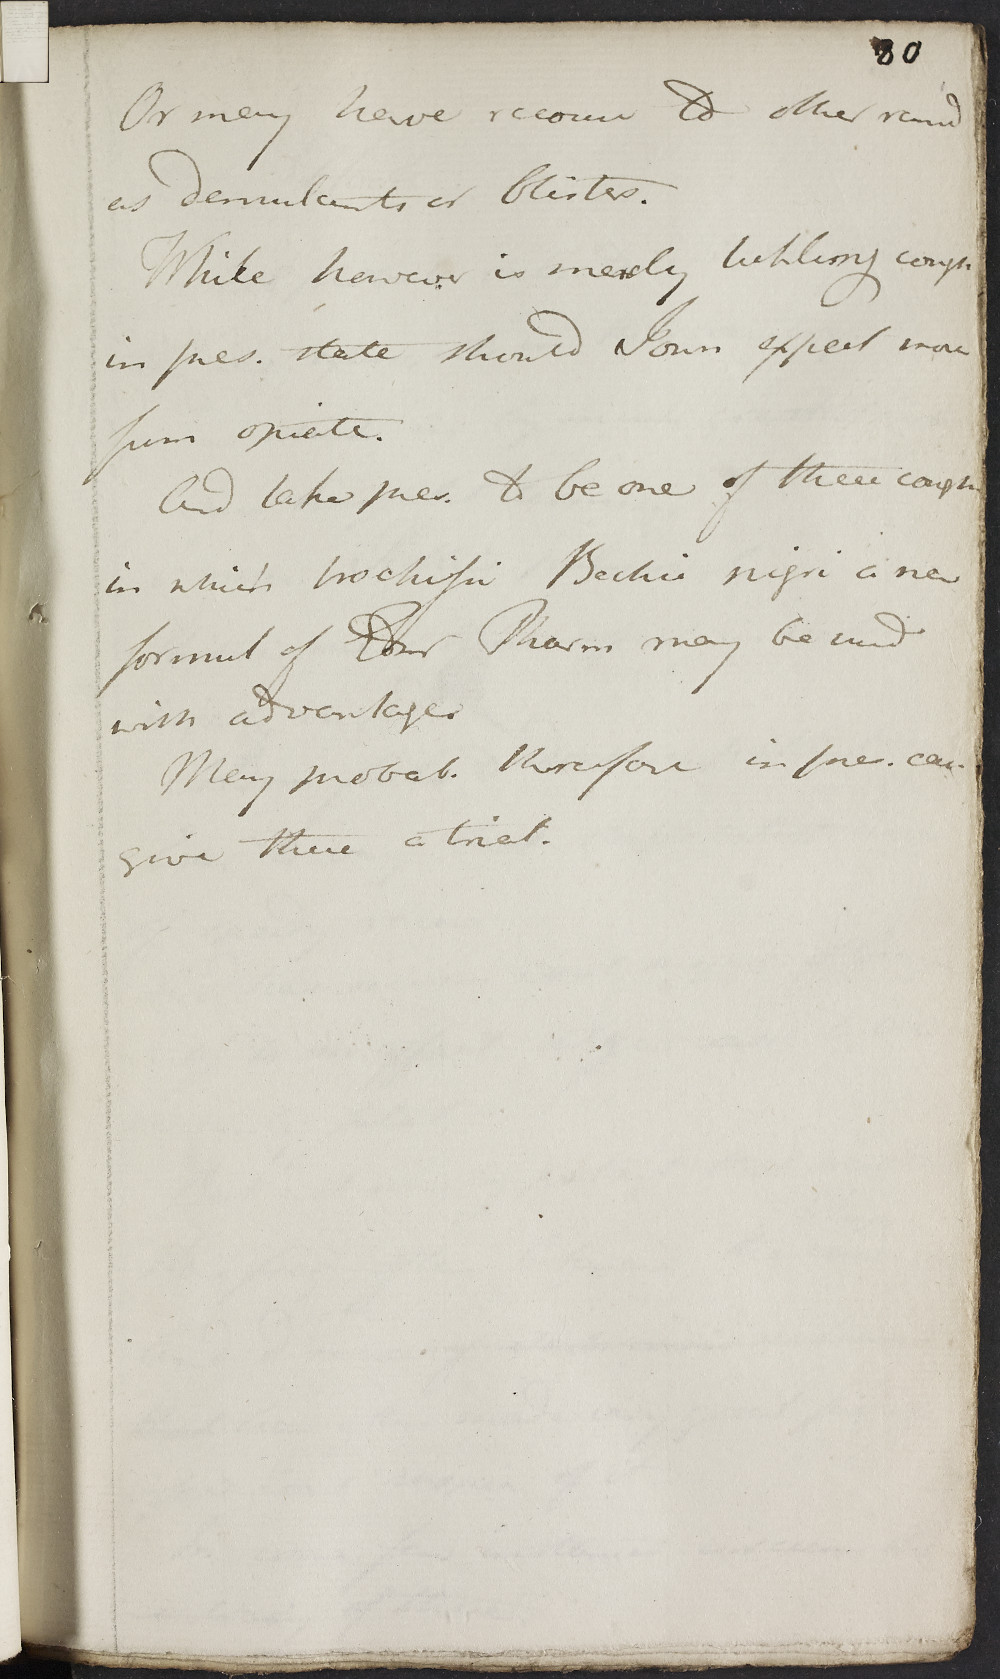 80
Or may have recour to other remd
as demulcents or blisters.
While however is merely tickling cough
in pres. state should I own expect more
from opiate.
And take pres. to be one of these coughs
in which trochisci Bechici nigri a new
formul of Edinr Pharm may be used
with advantage
May probab. therefore in pres. case
give these a trial.